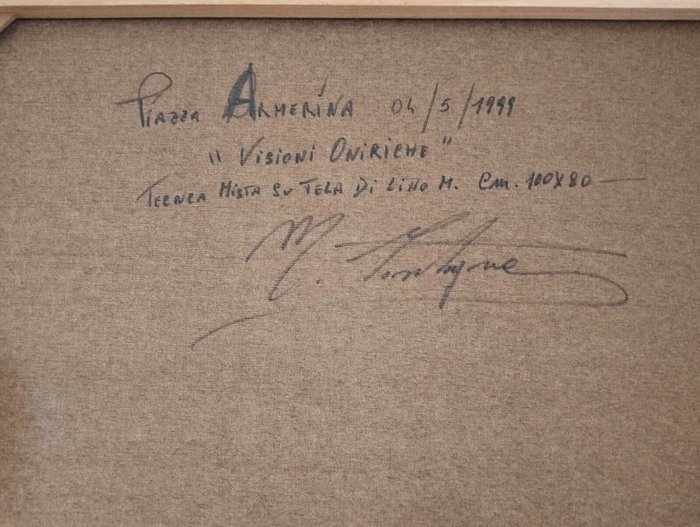 Piazza Armerina 04/5/1999
"Visioni Oniriche"
Tecnica Mista su Tela Di Lino M. cm. 100x80
M.